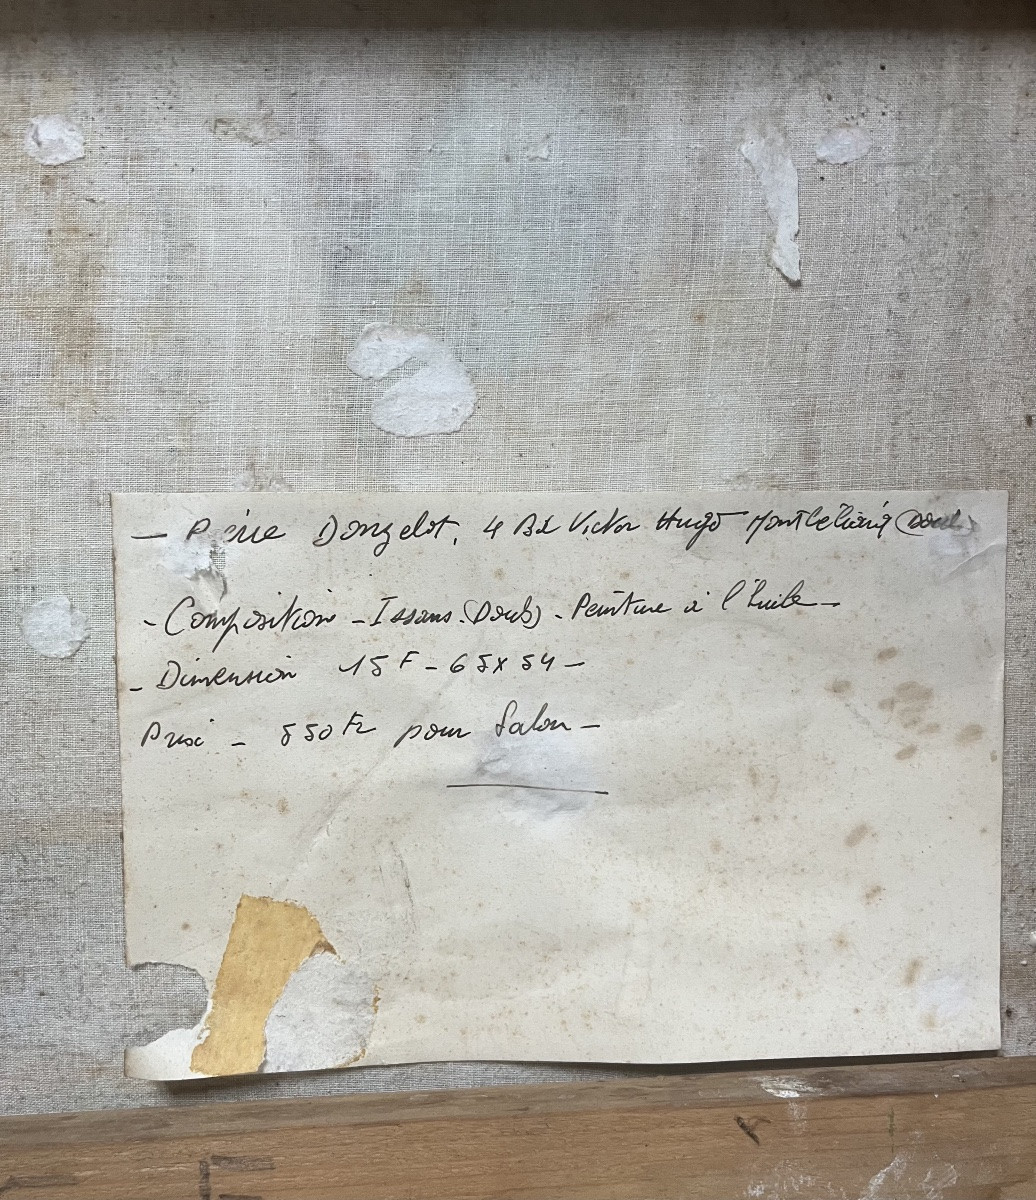 — Pierre Donzelot, 4 Bd Victor Hugo Montbéliard (Doubs)
- Composition - Issans (Doubs) - Peinture à l'huile -
- Dimension 15 F - 65 x 54 -
Prix - 550 Fr pour Salon -